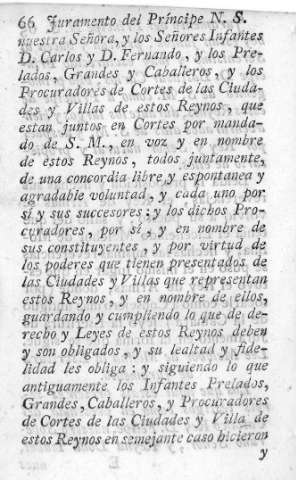 66 Juramento del Príncipe N. S.
nuestra Señora, y los Señores Infantes
D. Carlos y D. Fernando, y los Pre-
lados, Grandes y Caballeros, y los
Procuradores de Cortes de las Ciuda-
des y Villas de estos Reynos, que
estan juntos en Cortes por manda-
do de S. M., en voz y en nombre
de estos Reynos, todos juntamente,
de una concordia libre y espontanea y
agradable voluntad, y cada uno por
sí y sus successores: y los dichos Pro-
curadores, por sí, y en nombre de
sus constituyentes, y por virtud de
los poderes que tienen presentados de
las Ciudades y Villas que representan
estos Reynos, y en nombre de ellos,
guardando y cumpliendo lo que de de-
recho y Leyes de estos Reynos deben
y son obligados, y su lealtad y fide-
lidad les obliga: y siguiendo lo que
antiguamente los Infantes, Prelados,
Grandes, Caballeros, y Procuradores
de Cortes de las Ciudades y Villa de
estos Reynos en semejante caso hicieron
y